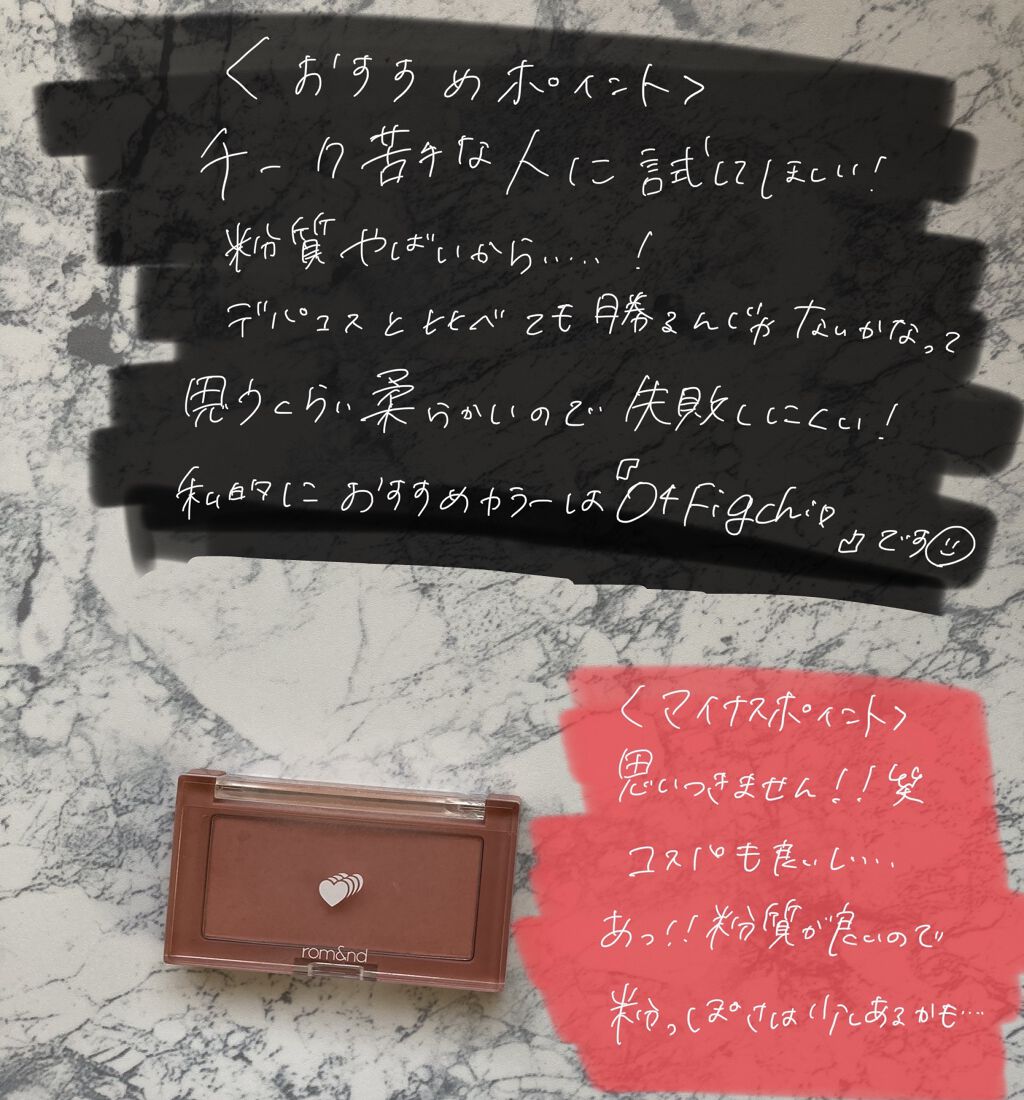 <おすすめポイント>
チーク苦手な人に試してほしい!
粉質やばいから…..!
デパコスと比べても勝るんじゃないかなって
思うくらい柔らかいので失敗しにくい!
私的におすすめカラーは『04 Fig chip
』です
<マイナスポイント>
思いつきません!!笑
コスパも良いし….
あっ!!粉質が良いので
粉っぽさは少しあるかも….
rom&nd